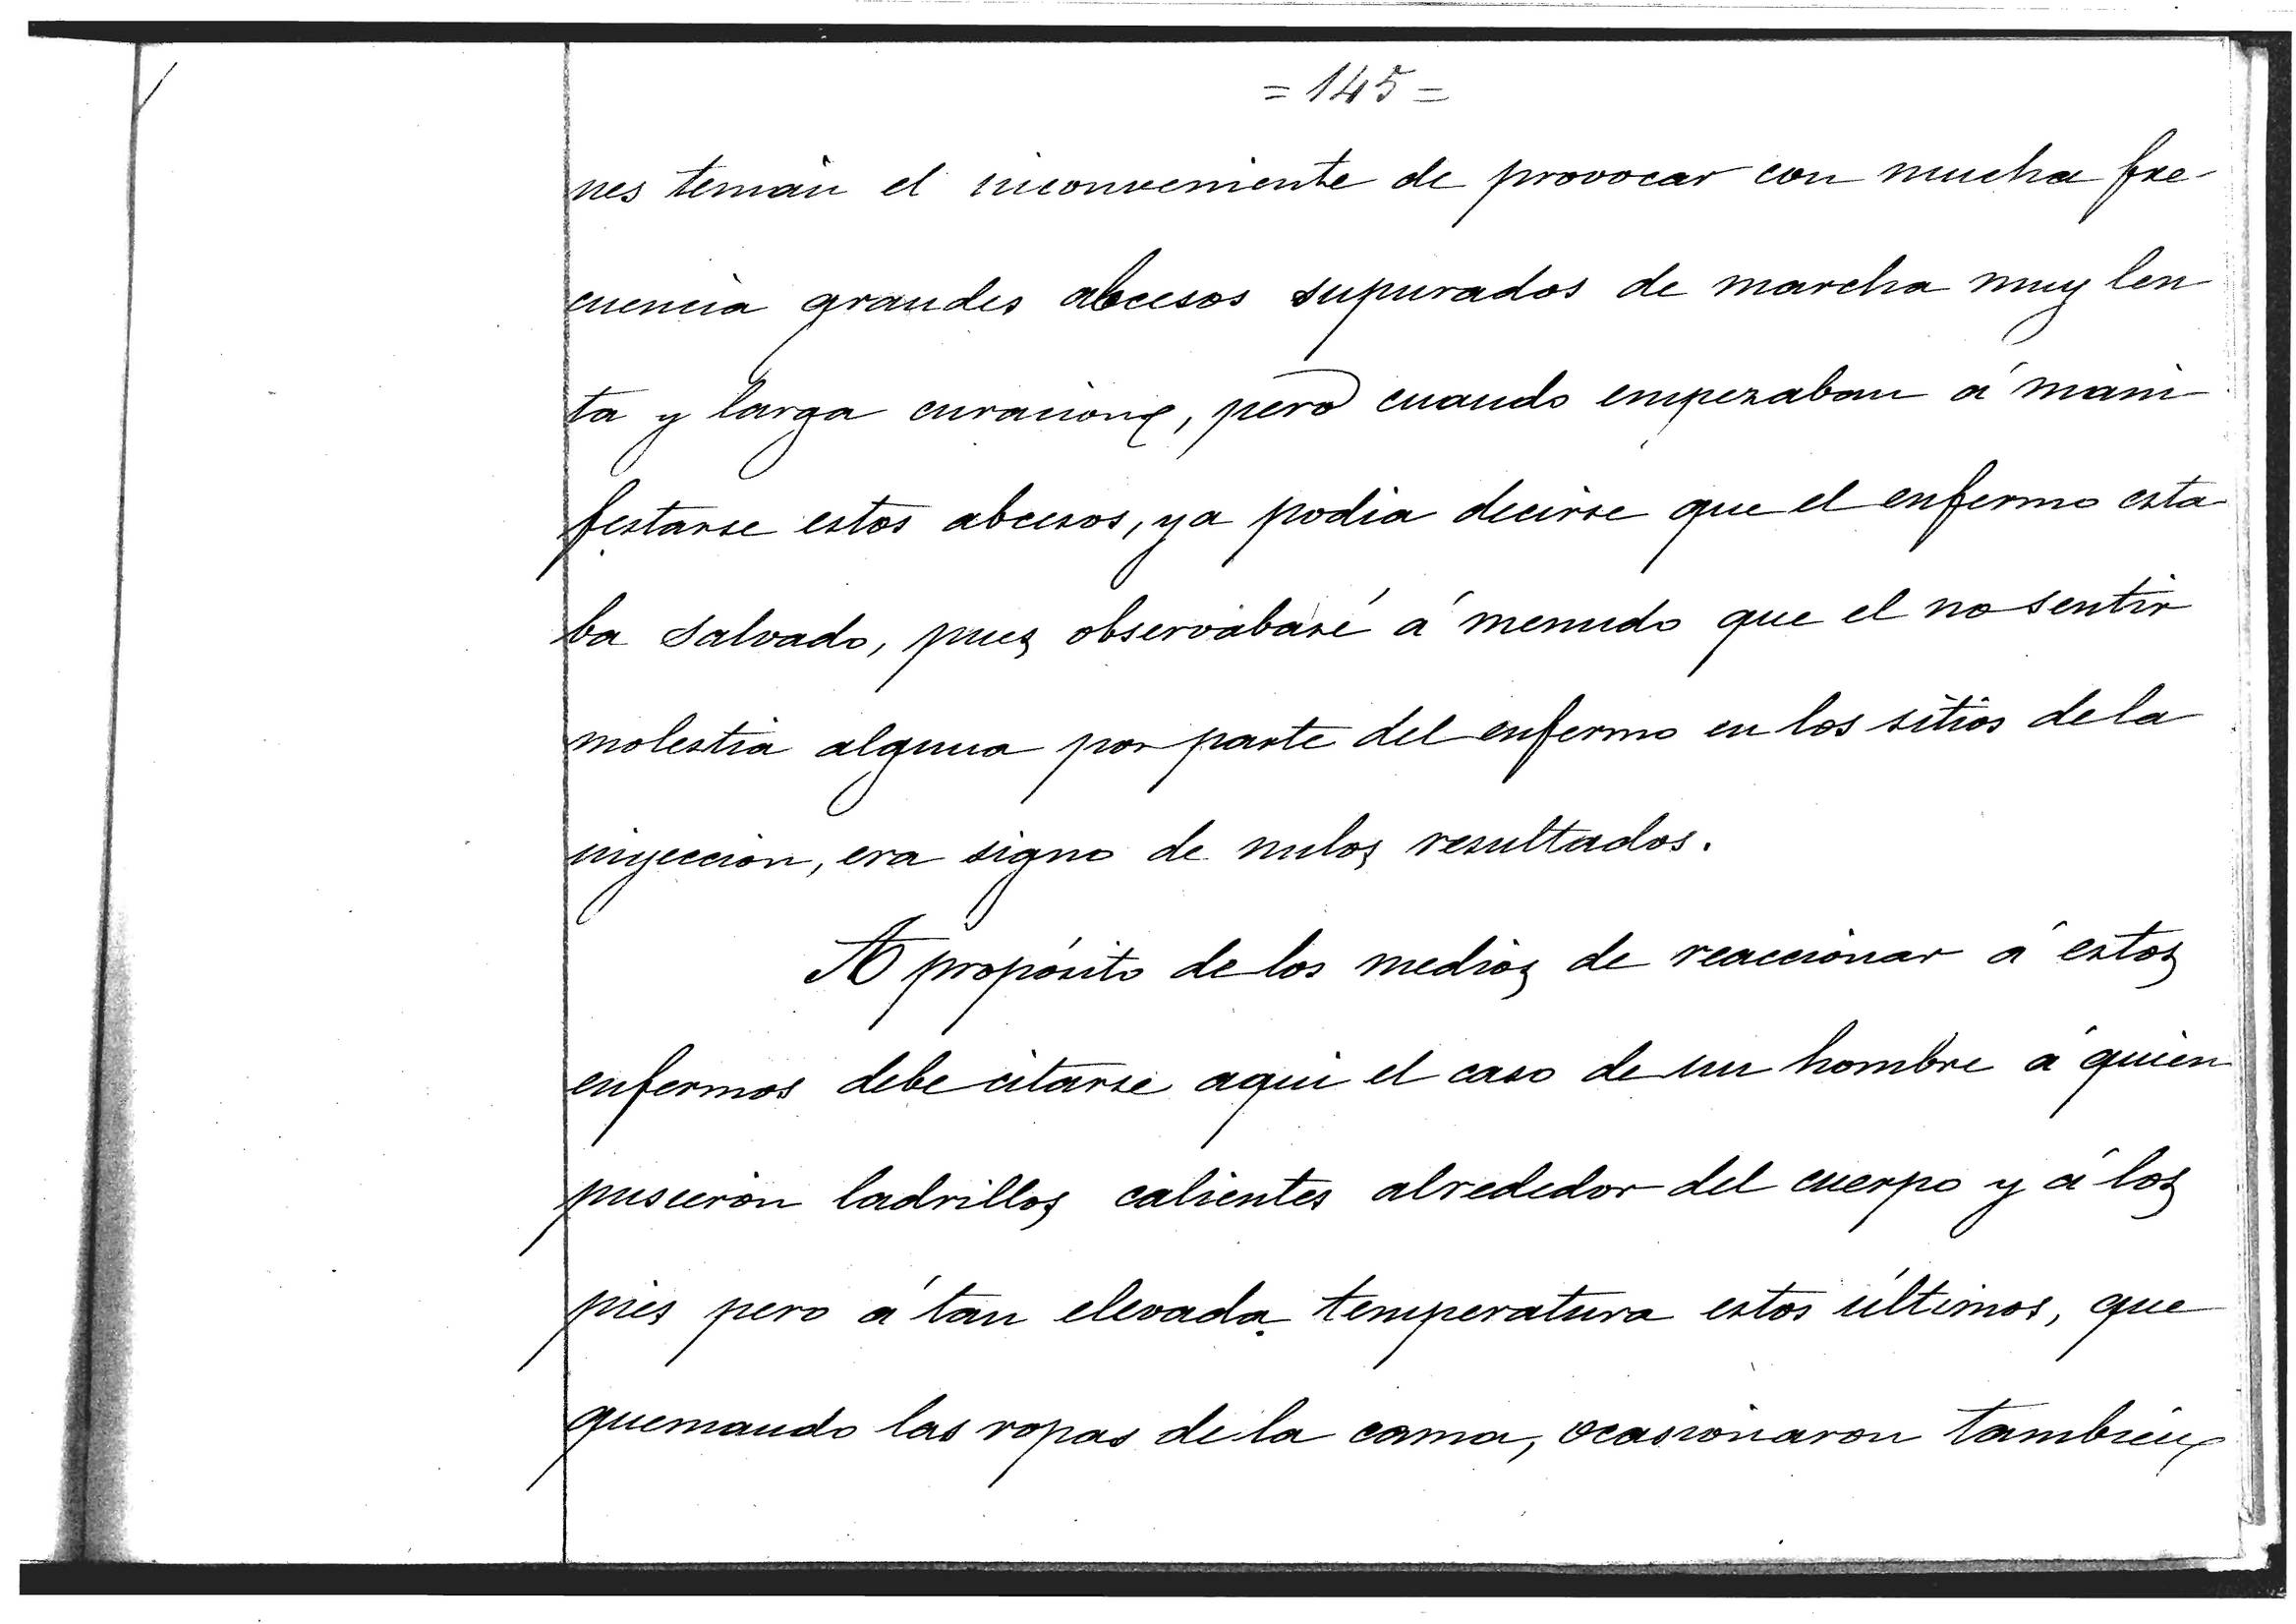 = 145 =
nes tenian el inconveniente de provocar con mucha fre-
cuencia grandes abcesos supurados de marcha muy len
ta y larga curacion, pero cuando empezaban á mani
festarse estos abcesos, ya podia decirse que el enfermo esta
ba salvado, pues observábasé á menudo que el no sentir
molestia alguna por parte del enfermo en los sitios de la
inyeccion, era signo de nulos resultados.
A propósito de los medios de reaccionar á estos
enfermos debe citarse aqui el caso de un hombre á quien
pusieron ladrillos calientes alrededor del cuerpo y á los
pies pero á tan elevada temperatura estos últimos, que
quemando las ropas de la cama, ocasionaron tambien